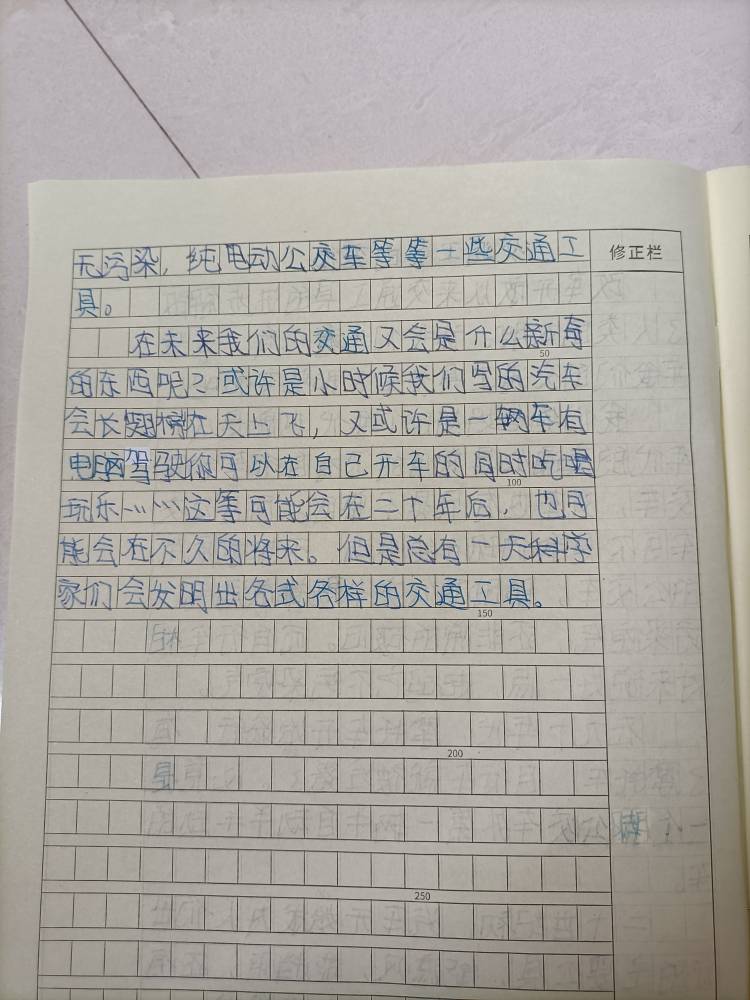 无污染，纯电动公交车等等一些交通工
修正栏
具。
在未来我们的交通又会是什么新奇
50
的东西呢？或许是小时候我们写的汽车
会长翅膀在天上飞，又或许是一辆车有
电脑驾驶你可以在自己开车的同时吃喝
100
玩乐……这等可能会在二十年后，也可
能会在不久的将来。但是总有一天科学
家们会发明出各式各样的交通工具。
150
200
250